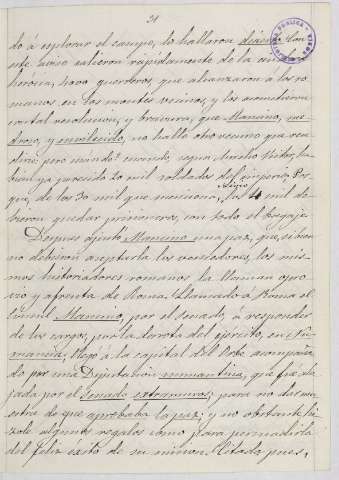 31
do á esplorar el campo, lo hallaron desierto. Con
que salieron rápidamente de la
heróica, guerreros, que alcanzaron á los ro
manos, en los montes vecinos, y los acometieron
con tal resolucion, y bravura, que Mancino, me
droso, y envilecido, no halló otro recurso que ren
dirse; pero cuando segun Aurelio Victor, ha
bían ya perecido 20 mil soldados del ejército. Por
que, de los 30 mil que mandaba, solo 10 mil de
bieron quedar prisioneros, con todo el bagaje.
Despues ajustó Mancino una paz, que, si bien
no debieron aceptarla los vencedores, los mis
mos historiadores romanos la llaman opro
vio y afrenta de Roma. Llamado á Roma el
cónsul Mancino, por el Senado, á responder
de los cargos, por la derrota del ejército, en Nu
mancia, llegó á la capital del Orbe acompaña
do por una Diputacion numantina, que fue alo
jada por el Senado extramuros; para no dar mu
estra de que aprobaba la paz; y no obstante hí
zole algunos regalos como para persuadirla
del feliz éxito de su mision. Citado pues,
BIBLIOTECA PUBLICA SORIA